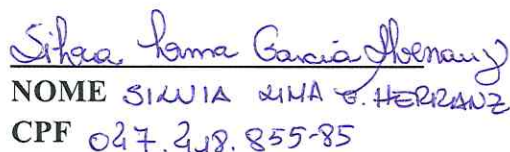 Silvia Lima Garcia Herranz
NOME SILVIA LIMA G. HERRANZ
CPF 027.218.855-85